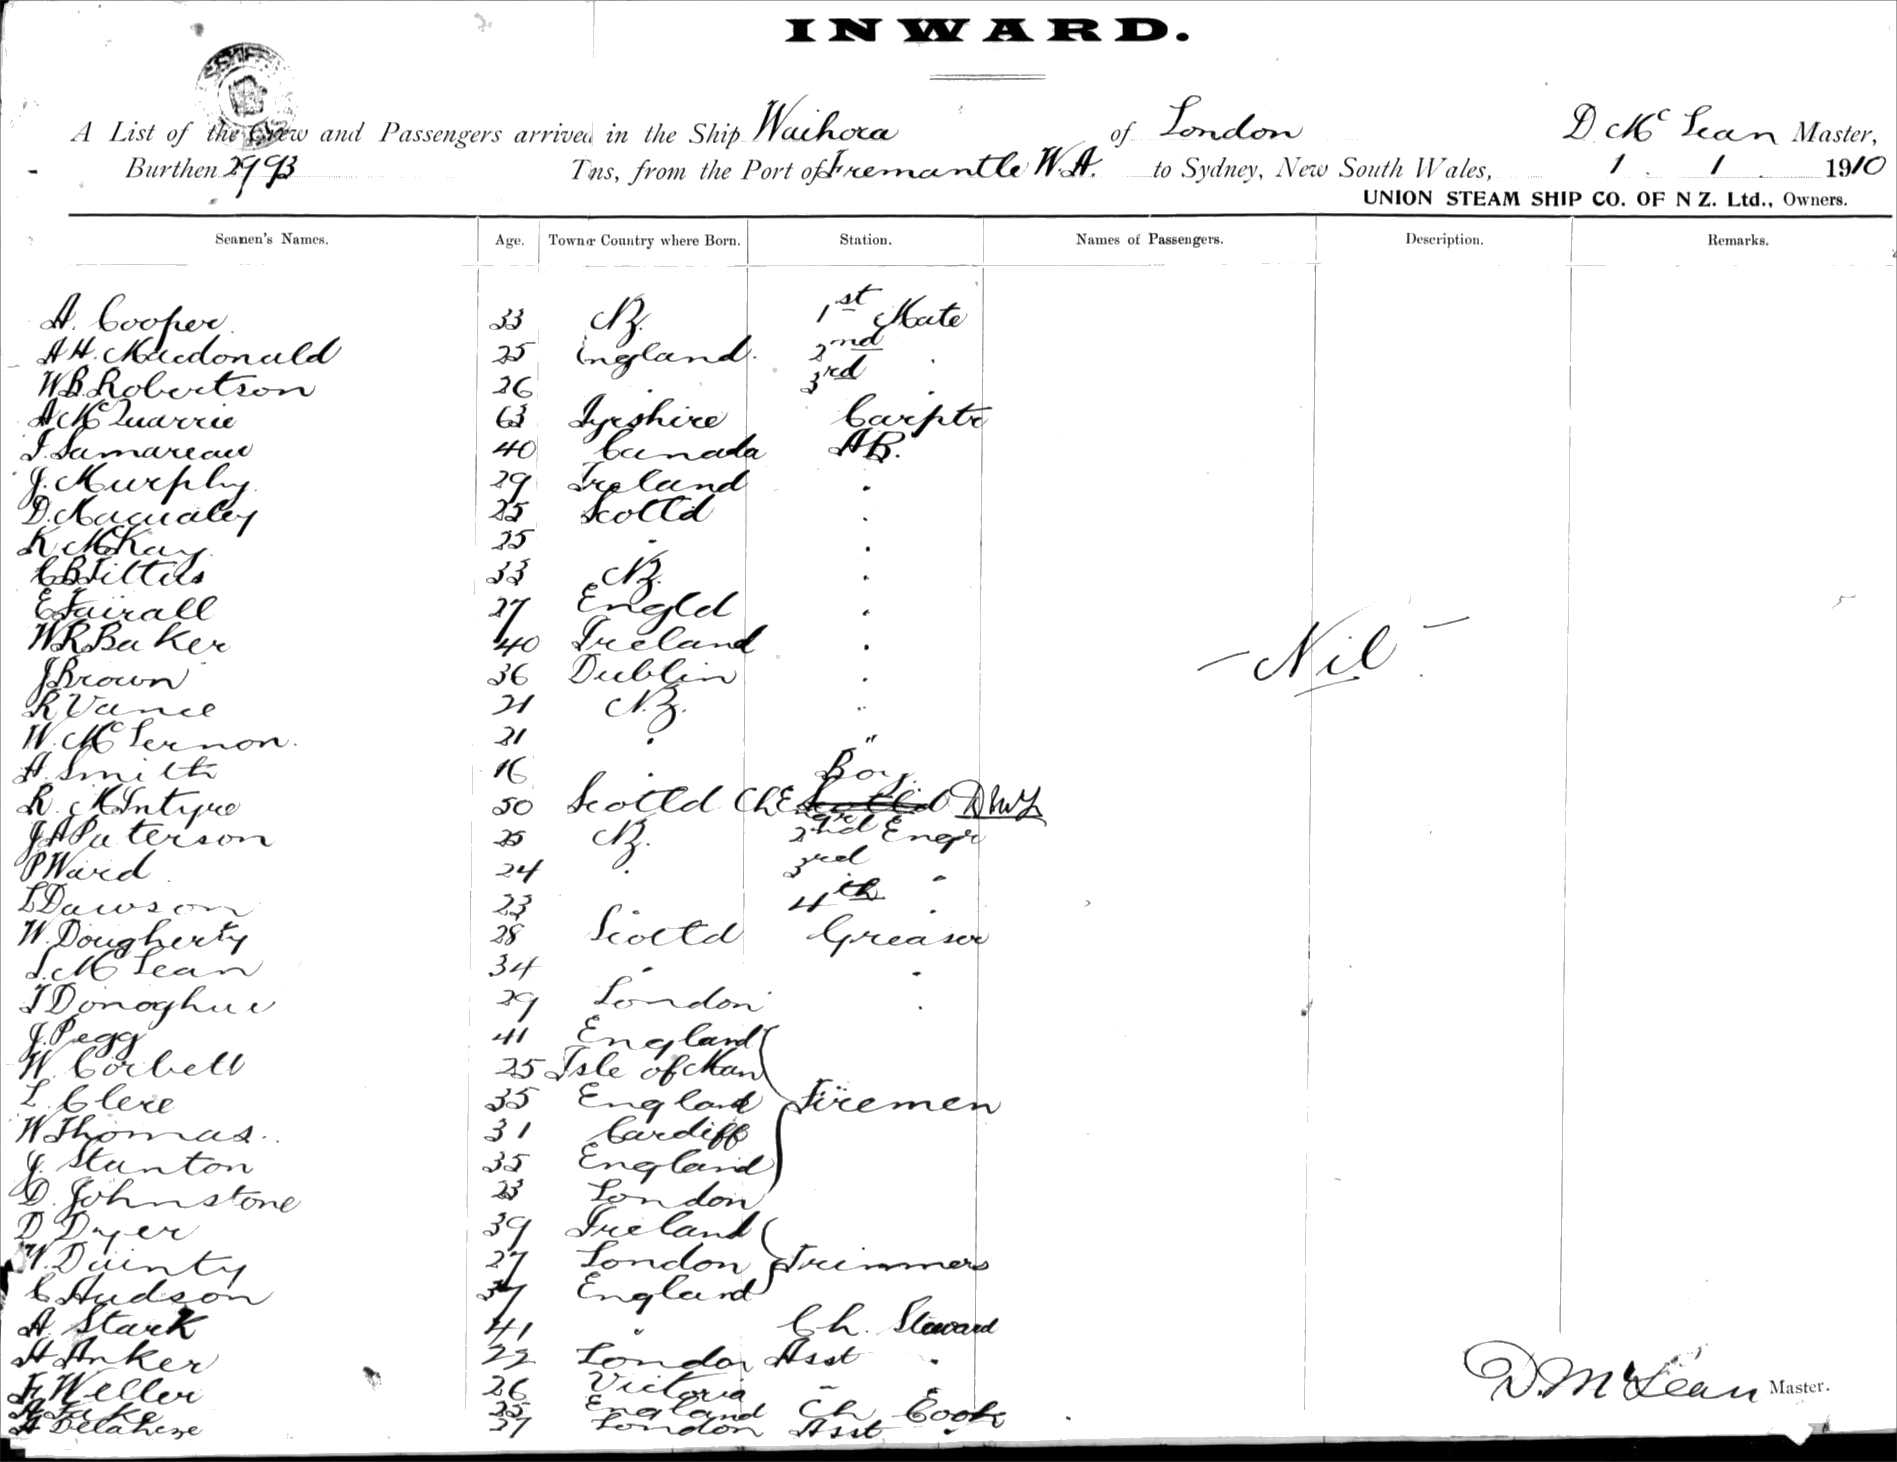 INWARD.
A List of the Crew and Passengers arrived in the Ship Waihora of London D. McLean Master,
Burthen 2993 Tns, from the Port of Fremantle W.A. to Sydney, New South Wales, 1 . 1 . 1910
UNION STEAM SHIP CO. OF N Z. Ltd., Owners.
Seamen's Names. Age. Town or Country where Born. Station. Names of Passengers. Description. Remarks.
A. Cooper 33 NZ. 1st Mate
A H. Macdonald 25 England. 2nd .
W.B. Robertson 26 . 3rd .
A McQuarrie 63 Ayrshire Carptr
J. Lamareau 40 Canada AB.
J. Murphy 29 Ireland .
D. Macualey 25 Scotld .
K McKay 25 . .
C B Tilttis 33 NZ. .
E Fairall 27 Engld .
W R Baker 40 Ireland .
J Brown 36 Dublin .
R Vance 21 N.Z. "
W. McLernon. 21 . "
- Nil -
A. Smith 16 . Boy.
R. McIntyre 50 Scotld Ch Engr DMcL
J A Paterson 25 NZ. 2nd Engr
P Ward 24 . 3rd "
L Dawson 23 4th .
W. Dougherty 28 Scotld Greaser
L. McLean 34 . .
J Donoghue 29 London .
J. Pegg 41 England
W. Corbett 25 Isle of Man
L. Clere 35 England Firemen
W Thomas. 31 Cardiff
J. Stanton 35 England
D. Johnstone 23 London
D Dyer 39 Ireland
W. Dainty 27 London Trimmers
C Hudson 37 England
A. Stark 41 " Ch. Steward
H Anker 22 London Asst .
F. Weller 26 Victoria "
25 England Ch Cook
A Delahere 27 London Asst .
D. McLean Master.